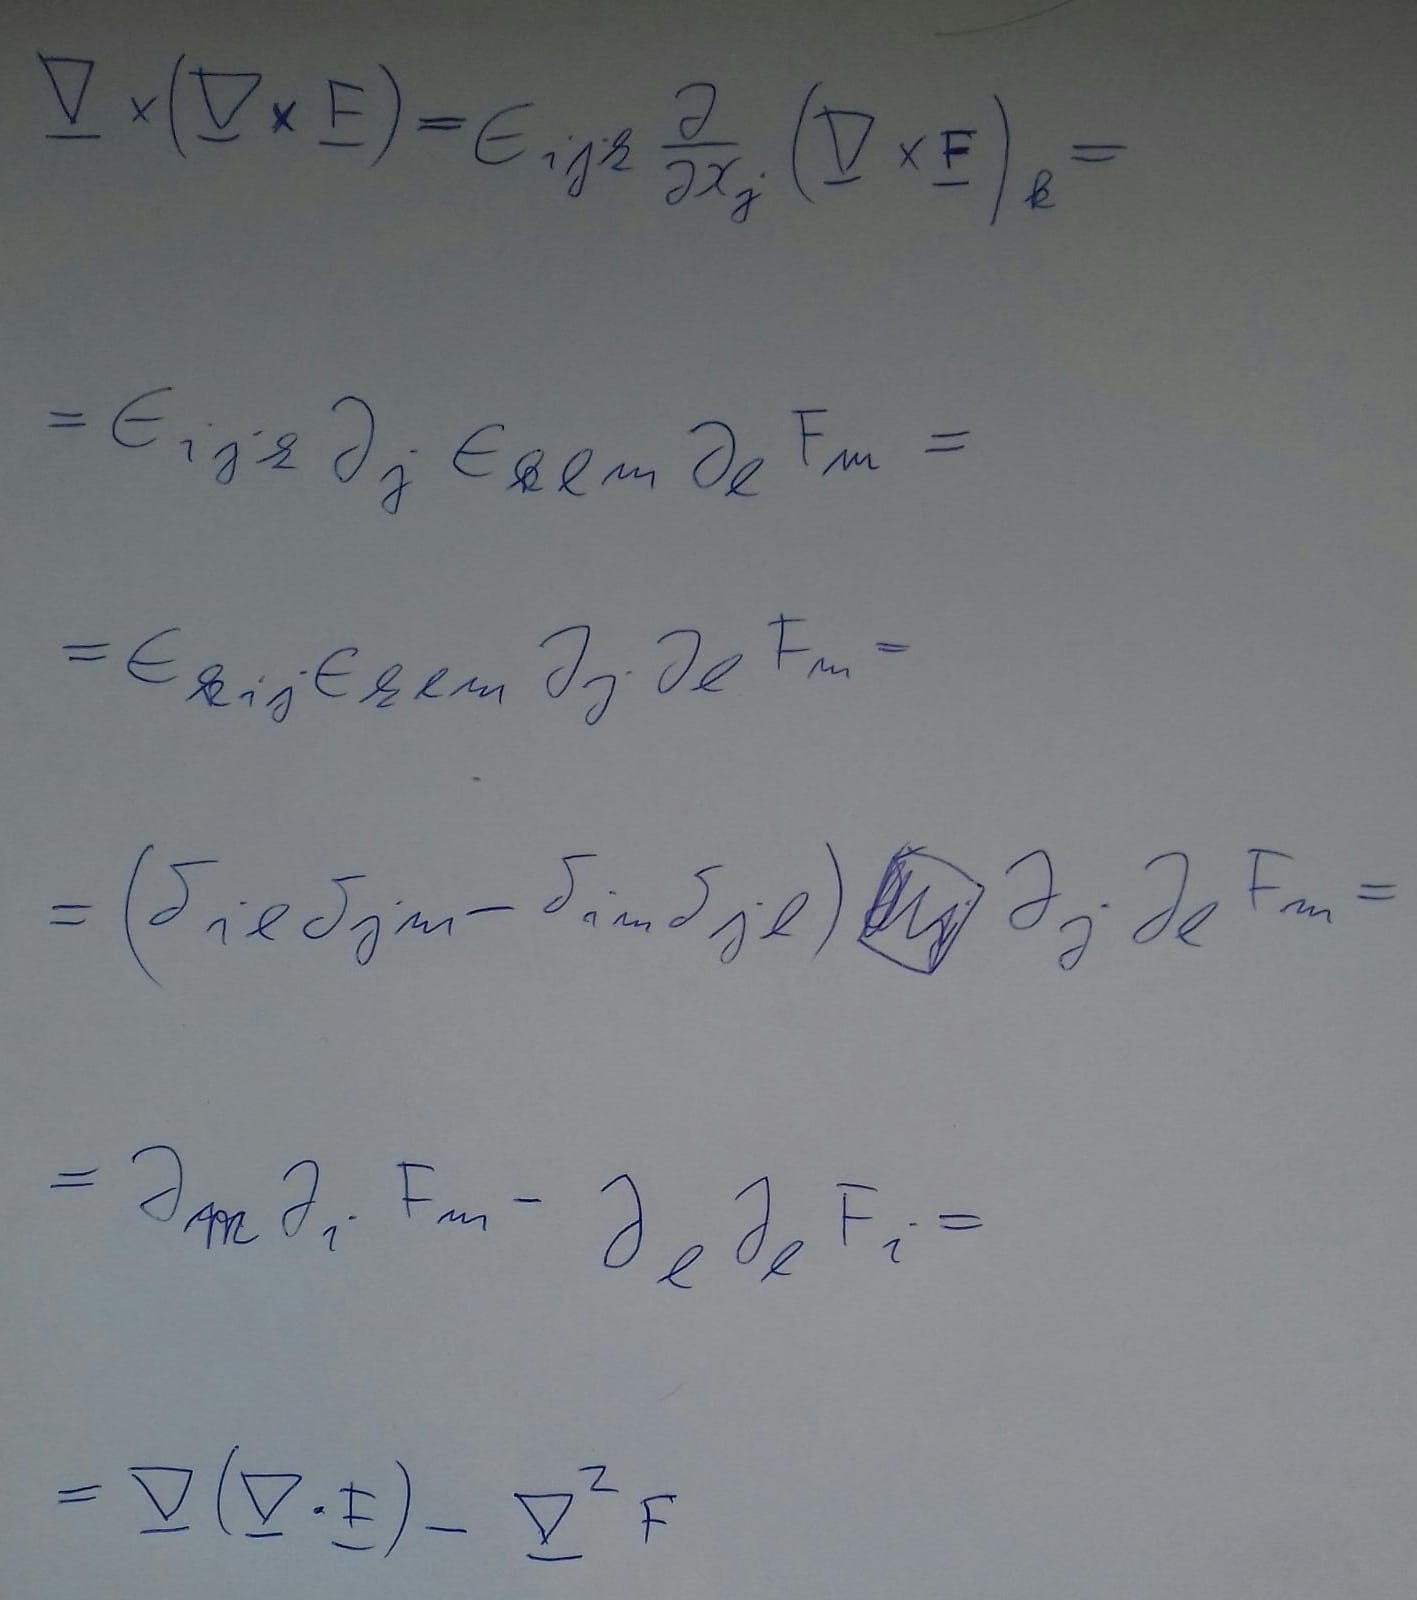 ∇ × (∇ × F) = ϵ_{ijk} ∂/∂x_j (∇ × F)_k =
= ϵ_{ijk} ∂_j ϵ_{klm} ∂_l F_m =
= ϵ_{kij} ϵ_{klm} ∂_j ∂_l F_m =
= (δ_{il} δ_{jm} − δ_{im} δ_{jl}) ∂_j ∂_l F_m =
= ∂_m ∂_i F_m − ∂_l ∂_l F_i =
= ∇(∇ · F) − ∇² F